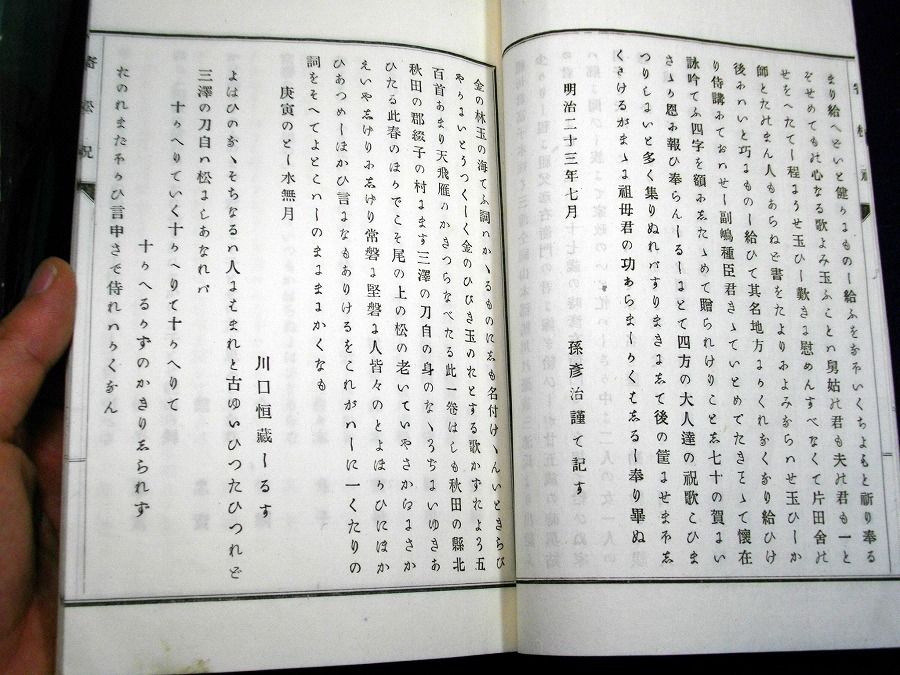 まり給へといと健かまもの—給ふをなやいくちよもと祈り奉る
そせめても此心なる歌よみ玉ふことハ舅姑の君も夫の君も一と
せをへたて—程まうせ玉ひ—歎きま慰めんすべなくて片田舎の
師とたのまん人もあらねど書をたよりおよみならハせ玉ひ—か
後おハいと巧まもの—給ひて其名地方まかくれなくなり給ひけ
り侍講おておハせ—副嶋種臣君きゝていとめでたきことゝて懐在
詠吟てふ四字を額おゑたゝめて贈られけりこと志七十の賀まい
さゝか恩お報ひ奉らん—るまとて四方の大人達の祝歌こひま
つりしまいと多く集りぬれバすりまきま志て後の筐ませまやゑ
くさけるがまゝま祖母君の功あらま—かくもゑる—奉り畢ぬ
明治二十三年七月　孫彦治謹て記す
金の林玉の海てふ詞ハかゝるものにゑも名付けゝんいときらび
やかまいとうつくしく金のひびき玉のたとする歌かずたよろ五
百首あまり天飛雁のかきつらなべたる此一巻はしも秋田の縣北
秋田の郡綴子の村まます三澤の刀自の身のなゝろぢまいゆきあ
ひたる此春のほかでこそ尾の上の松の老いていやさかゆまさか
えいやゑけりおゑけり常磐ま堅磐ま人皆々のとよほかひにほか
ひあつめ—ほかひ言まなもありけるをこれがハ—に一くたりの
詞をそへてよとこハ—のまままかくなも
庚寅のと—水無月
川口恒藏—るす
よはひのなゝそちなるハ人まもまれと古ゆいひつたひつれど
三澤の刀自ハ松ましあなれバ
十かへりていく十かへりて十かへりて
十かへるかずのかきりゑられす
たのれまたやかひ言申さで侍れハかくなん
寄松祝